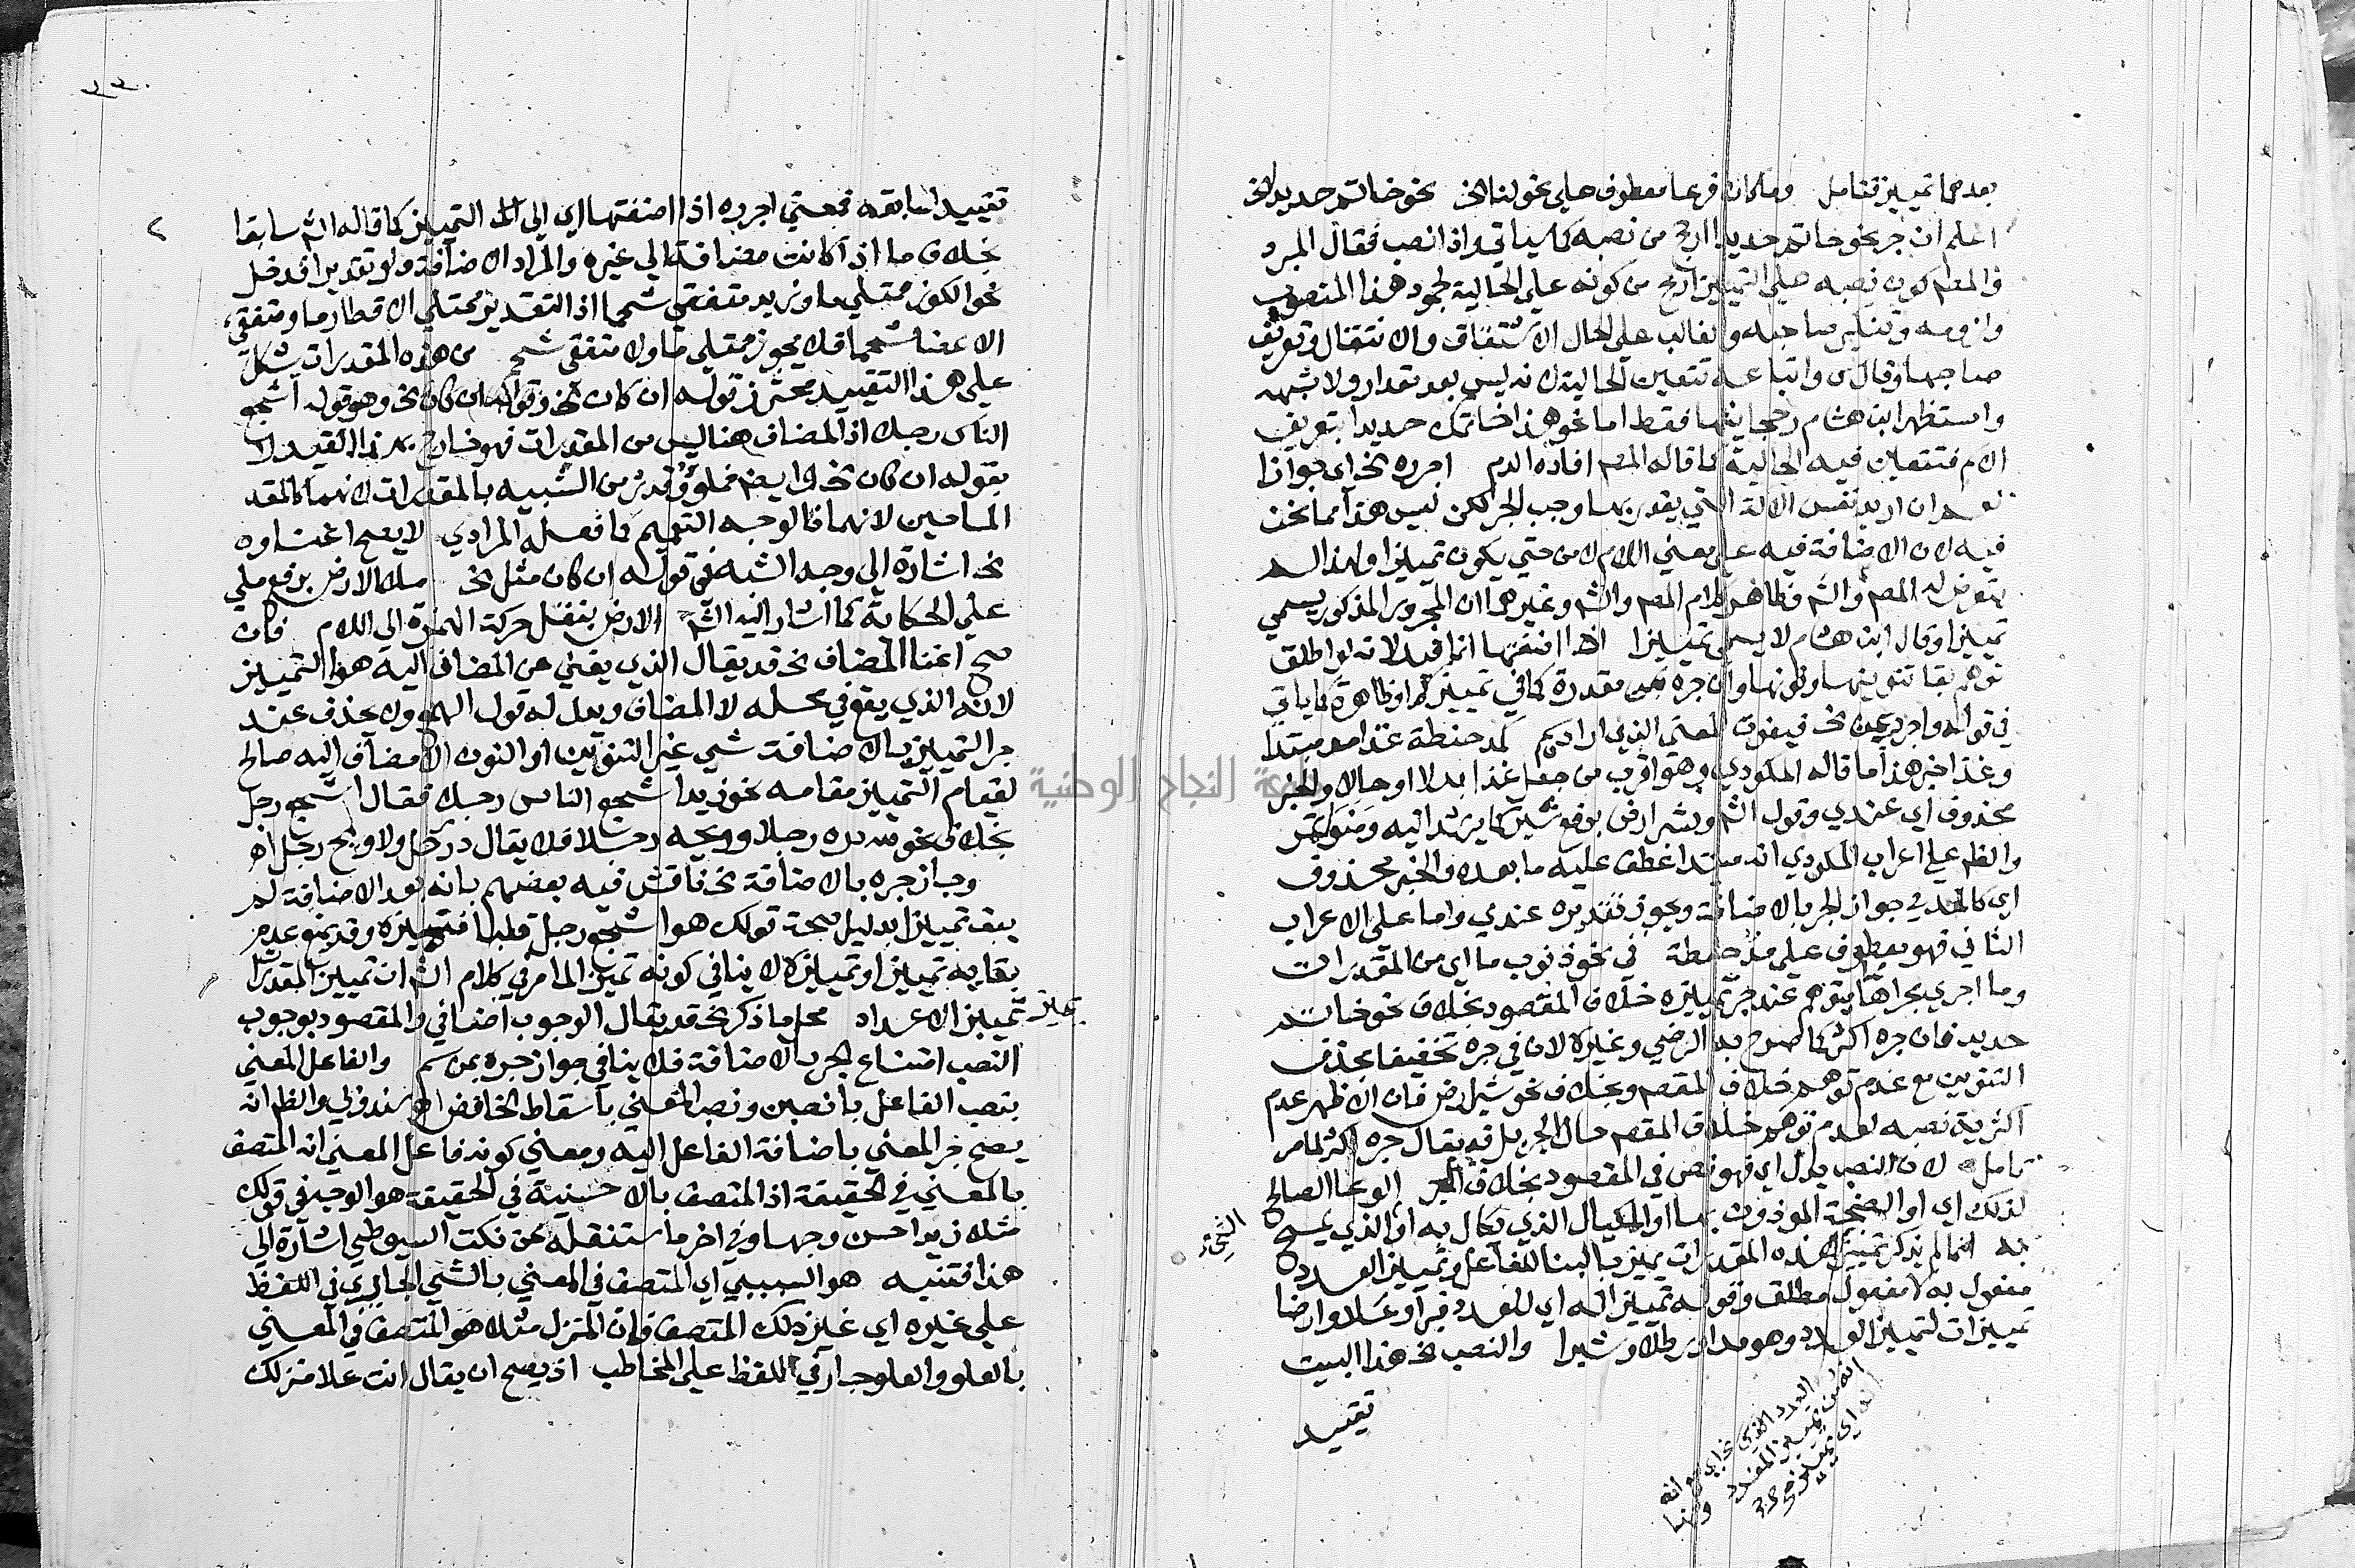 بعدهما تمييز فتأمل وما كان فرعا معطوف على نحو لنا الخ نحو خاتم حديد الخ
اعلم ان جر نحو خاتم حديد ارجح من نصبه كما سياتي واذا نصب فقال المبرد
والمص كون نصبه على التمييز ارجح من كونه على الحالية لجمود هذا المنصوب
ولزومه وتنكير صاحبه والغالب على الحال الاشتقاق والانتقال وتعريف
صاحبها وقال س واتباعه تتعين الحالية لانه ليس بعد مقدار ولا شبهه
واستظهر ابن هشام رجحانيتها فقط اما نحو هذا خاتمك حديدا بتعريف
الاسم فتتعين فيه الحالية كما قاله المص افاده الدم اجرره الخ اي جوازا
نعم ان اريد نفس الالة التي يقدر بها وجب الجر لكن ليس هذا مما نحن
فيه لان الاضافة فيه على معني اللام لا من حتي يكون تمييزا ولهذا لم
يتعرض له المص والش فظاهر كلام المص والش وغيرهما ان المجرور المذكور يسمي
تمييزا وقال ابن هشام لا يسمي تمييزا اذا اضفتها انما قيد لانه لو اطلق
توهم بقا تنوينها ونونها وان جره بمن مقدرة كما في تمييز كم او ظاهرة كما ياتي
في قوله واجرر بمن الخ فيفوت المعني الذي اراده كمد حنطة غذا مد مبتدا
وغذا خبر هذا ما قاله المكودي وهو اقرب من جعل غذا بدلا او حالا والخبر
محذوف اي عندي وقول الش وبشبر ارض برفع شبر كما يرشد اليه ومنوا تمر
والظ على اعراب المكودي انه مبتدا عطف عليه ما بعده والخبر محذوف
اي كالمد في جواز الجر بالاضافة ويجوز تقديره عندي واما على الاعراب
الثاني فهو معطوف على مد حنطة في نحو ذنوب ما اي من المقدرات
وما اجري مجراها يتوهم عند جر تمييزه خلاف المقصود بخلاف نحو خاتم
حديد فان جره اكثر كما صرح به الرضي وغيره لان في جره تخفيفا بحذف
التنوين مع عدم توهم خلاف المقص وبخلاف نحو شبر ارض فان الاظهر عدم
اكثرية نصبه لعدم توهم خلاف المقص حال الجر بل قد يقال جره اكثر لما مر
تامل لان النصب يدل اي فهو نص في المقصود بخلاف الجر الوعا الصالح
لذلك اي او الصنجة الموزون بها او المكيال الذي يكال به او الذي يمسح
الشيء
به انما لم يذكر تمييز هذه المقدرات يميز بالبنا للفاعل وتمييز العدد
مفعول به لا مفعول مطلق وقوله تمييزا له اي للعدد فبرا وعسلا وارضا
تمييزات لتمييز العدد وهو مدا ورطلا وشبرا والنصب الخ هذا البيت
تقييد
تقييد لسابقه فمعني اجرره اذا اضفتها اي الي التمييز كما قاله الش سابقا
بخلاف ما اذا كانت مضافة الي غيره والمراد الاضافة ولو تقديرا فدخل
نحو الكوز ممتلي ما وزيد متفقئ شحما اذ التقدير ممتلي الاقطار ما ومتفقئ
الاعضا شحما فلا يجوز ممتلي ما ولا متفقئ شحم من هذه المقدرات يشكل
على هذا التقييد محترز قوله ان كان الخ وقوله ان كان الخ وهو قوله اشجع
الناس رجلا اذ المضاف هنا ليس من المقدرات فهو خارج بهذا القيد لا
بقوله ان كان الخ وايضا فملؤ وقدر من الشبيه بالمقدرات لانهما كالمقد
المساحين لانهما فالوجه التعميم كما فعله المرادي لا يصح اغناوه
الخ اشارة الي وجه الشبه في قوله ان كان مثل الخ ملء الارض برفع ملي
على الحكاية كما اشار اليه الش الارض بنقل حركة الهمزة الي اللام فان
صح اغنا المضاف الخ قد يقال الذي يغني عن المضاف اليه هو التمييز
لانه الذي يقع في محله لا المضاف ويدل له قول الهمع ولا يحذف عند
جر التمييز بالاضافة شي غير التنوين او النون الا مضاف اليه صالح
لقيام التمييز مقامه نحو زيد اشجع الناس رجلا فيقال اشجع رجل
بخلاف نحو لله دره رجلا وويحه رجلا فلا يقال در رجل ولا ويح رجل اه
وجاز جره بالاضافة الخ ناقش فيه بعضهم بانه بعد الاضافة لم
يبق تمييزا بدليل صحة قولك هو اشجع رجل قلبا فتمييزه وقد يمنع عدم
بقايه تمييزا وتمييزه لا ينافي كونه تمييزا لما مر في كلام الش ان تمييز المقدر
تمييز تمييز الاعداد محل ما ذكر الخ قد يقال الوجوب اضافي والمقصود بوجوب
النصب امتناع الجر بالاضافة فلا ينافي جواز جره بمن سم والفاعل المعني
بنصب الفاعل بانصبن ونصب المعني باسقاط الخافض اه سندوبي والظ انه
يصح جر المعني باضافة الفاعل اليه ومعني كونه فاعل المعني انه المتصف
بالمعني في الحقيقة اذ المتصف بالاحسنية في الحقيقة هو الوجه في قولك
مثلا زيد احسن وجها وفي اخر ما سننقله عن نكت السيوطي اشارة الي
هذا فتنبه هو السببي اي المتصف في المعني بالشي الجاري في اللفظ
على غيره اي غير ذلك المتصف فان المنزل مثلا هو المتصف في المعني
بالعلو والعلو جار في اللفظ على المخاطب اذ يصح ان يقال انت علا منزلك